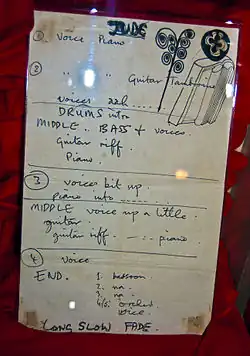 JUDE
① Voice Piano
②
" " " Guitar Tambourine
voices aah .....
DRUMS into
MIDDLE .. BASS + voices.
Guitar riff.
Piano.
③ voices bit up.
piano into ......
MIDDLE voice up a little.
guitar.
guitar riff. .. .. piano.
④ voice
END. 1. bassoon
2. na.
3. na.
4/5.
LONG SLOW FADE.